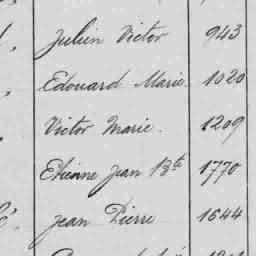 Julien Victor 943
Edouard Marie. 1020
Victor Marie. 1209
Etienne Jean Bte 1770
Jean Pierre 1644